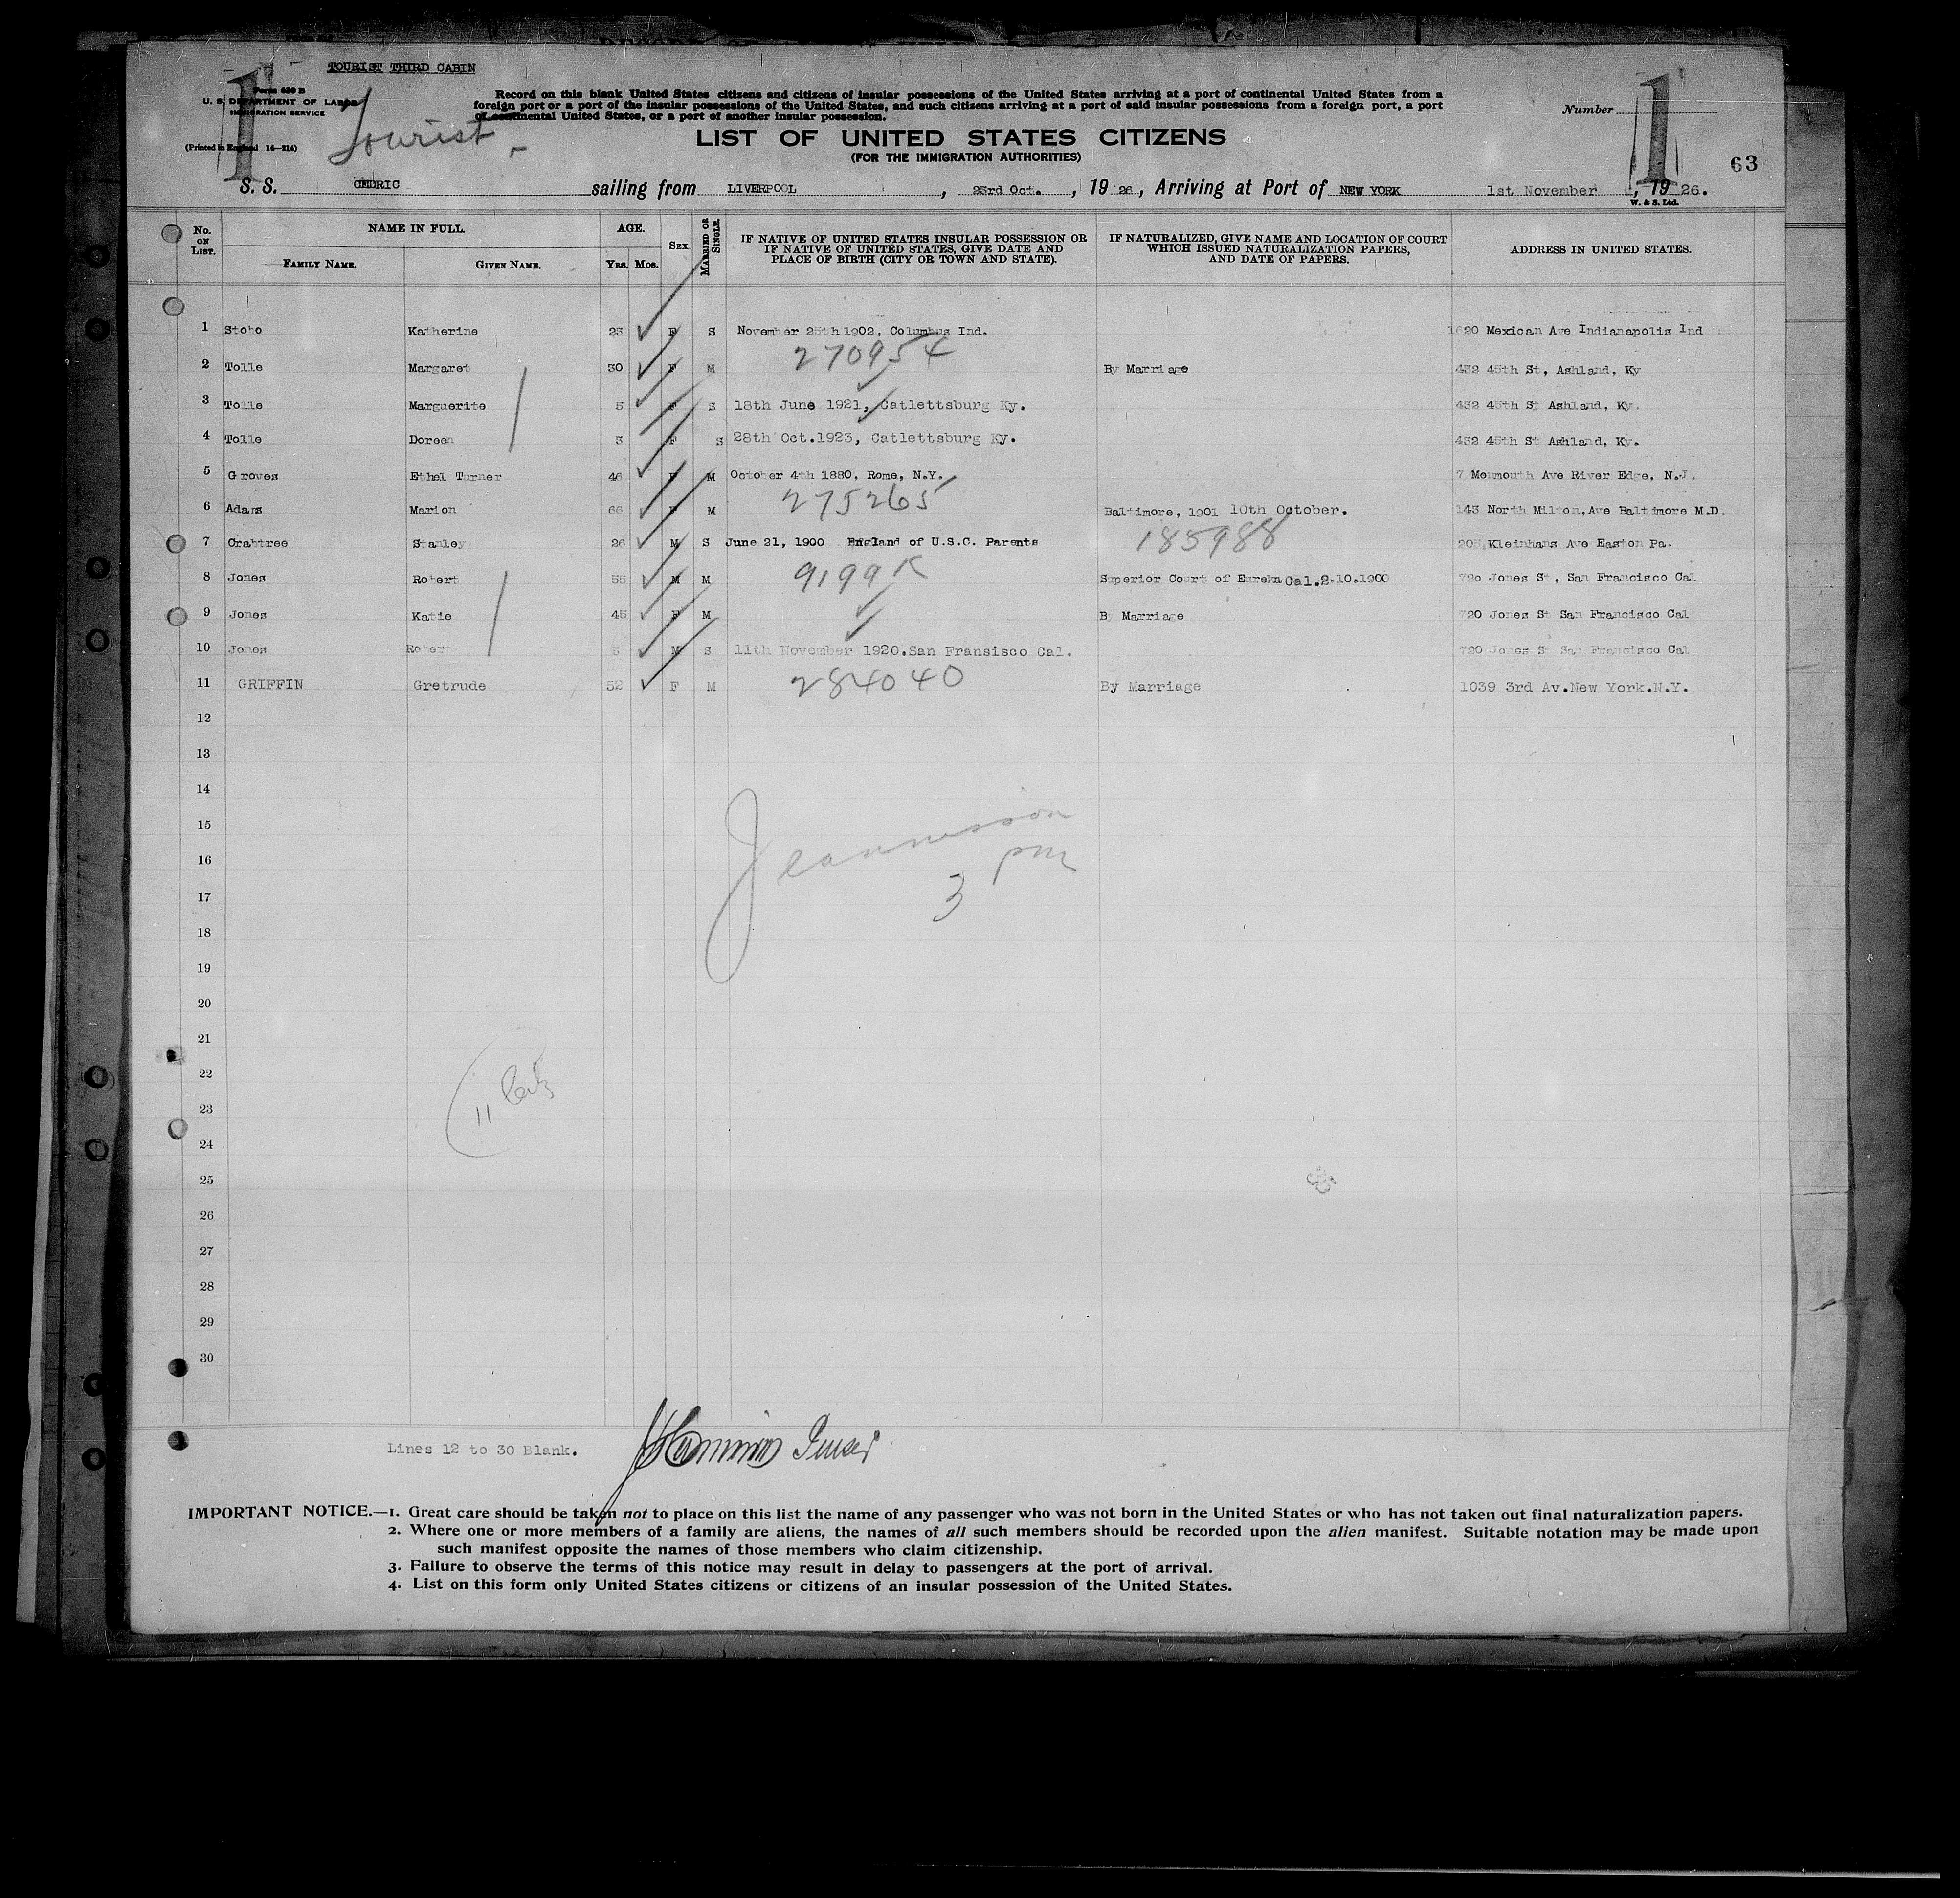 TOURIST THIRD CABIN
1
1
Form 630 B
U. S. DEPARTMENT OF LABOR
IMMIGRATION SERVICE
(Printed in England 14—214)
Tourist
Record on this blank United States citizens and citizens of insular possessions of the United States arriving at a port of continental United States from a
foreign port or a port of the insular possessions of the United States, and such citizens arriving at a port of said insular possessions from a foreign port, a port
of continental United States, or a port of another insular possession.
Number
LIST OF UNITED STATES CITIZENS
(FOR THE IMMIGRATION AUTHORITIES)
63
S. S. CEDRIC sailing from LIVERPOOL, 23rd Oct., 19 26, Arriving at Port of NEW YORK 1st November, 19 26.
W. & S. Ltd.
No. ON LIST. NAME IN FULL. AGE. SEX. MARRIED OR SINGLE. IF NATIVE OF UNITED STATES INSULAR POSSESSION OR IF NATIVE OF UNITED STATES, GIVE DATE AND PLACE OF BIRTH (CITY OR TOWN AND STATE). IF NATURALIZED, GIVE NAME AND LOCATION OF COURT WHICH ISSUED NATURALIZATION PAPERS, AND DATE OF PAPERS. ADDRESS IN UNITED STATES.
FAMILY NAME. GIVEN NAME. YRS. MOS.
1 Katherine 23 F S November 25th 1902, Columbus Ind. 1620 Mexican Ave Indianapolis Ind
270954
2 Tolle Margaret 30 F M By Marriage 432 45th St, Ashland, Ky
3 Tolle Marguerite 5 F S 18th June 1921, Catlettsburg Ky. 432 45th St Ashland, Ky.
4 Tolle Doreen 3 F S 28th Oct.1923, Catlettsburg Ky. 432 45th St Ashland, Ky.
5 Groves Ethel Turner 46 F M October 4th 1880, Rome, N.Y. 7 Monmouth Ave River Edge, N.J.
275265
6 Adams Marion 66 F M Baltimore, 1901 10th October. 143 North Milton,Ave Baltimore M.D.
7 Crabtree Stanley 26 M S June 21, 1900 England of U.S.C. Parents 185988 205,Kleinhans Ave Easton Pa.
9199 K
8 Jones Robert 55 M M Superior Court of Eureka Cal.2-10.1900 720 Jones St, San Francisco Cal
9 Jones Katie 45 F M B Marriage 720 Jones St San Francisco Cal
10 Jones Robert 5 M S 11th November 1920.San Fransisco Cal. 720 Jones St San Francisco Cal
11 GRIFFIN Gretrude 52 F M 284040 By Marriage 1039 3rd Av.New York.N.Y.
12
13
14
15
16
17
18
19
20
21
22
23
24
25
26
27
28
29
30
3 pm
11
Lines 12 to 30 Blank.
IMPORTANT NOTICE.—1. Great care should be taken not to place on this list the name of any passenger who was not born in the United States or who has not taken out final naturalization papers.
2. Where one or more members of a family are aliens, the names of all such members should be recorded upon the alien manifest. Suitable notation may be made upon
such manifest opposite the names of those members who claim citizenship.
3. Failure to observe the terms of this notice may result in delay to passengers at the port of arrival.
4. List on this form only United States citizens or citizens of an insular possession of the United States.